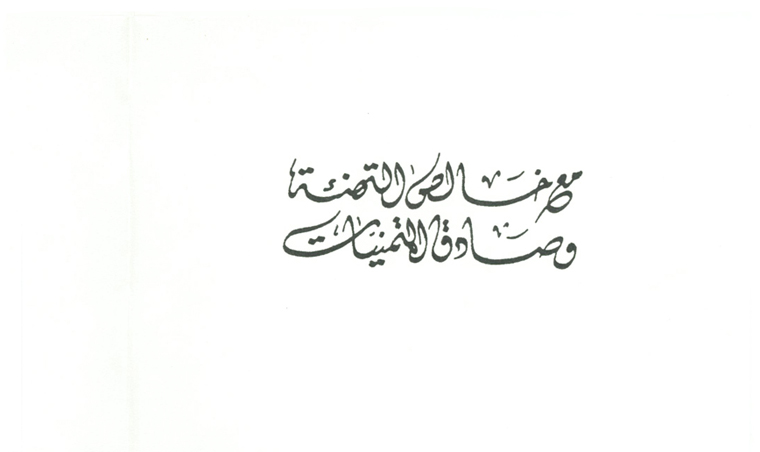 مع خالص التهنئة
وصادق التمنيات